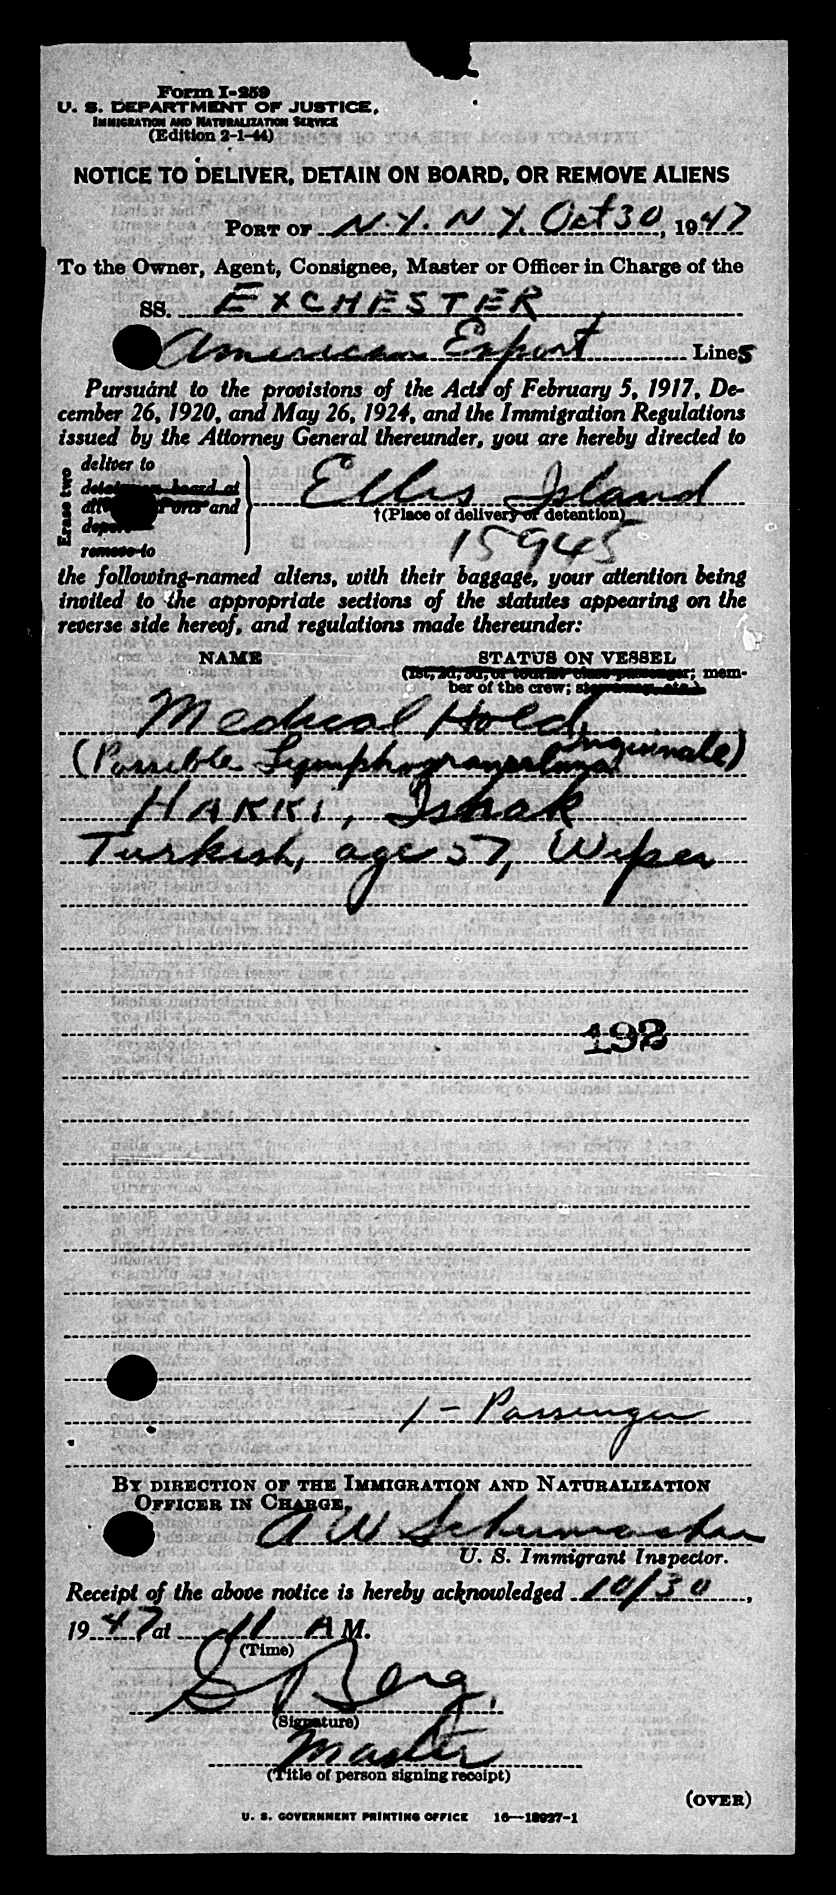 Form I-259
U. S. DEPARTMENT OF JUSTICE,
IMMIGRATION AND NATURALIZATION SERVICE
(Edition 2-1-44)
NOTICE TO DELIVER, DETAIN ON BOARD, OR REMOVE ALIENS
PORT OF N.Y. N.Y. Oct 30, 1947
To the Owner, Agent, Consignee, Master or Officer in Charge of the
SS. EXCHESTER
American Export Lines
Pursuant to the provisions of the Acts of February 5, 1917, De-
cember 26, 1920, and May 26, 1924, and the Immigration Regulations
issued by the Attorney General thereunder, you are hereby directed to
Erase two
deliver to
detain on board at
and
remove to
Ellis Island
†(Place of delivery or detention)
15945
the following-named aliens, with their baggage, your attention being
invited to the appropriate sections of the statutes appearing on the
reverse side hereof, and regulations made thereunder:
NAME STATUS ON VESSEL
(1st, 2d, 3d, or tourist class passenger; mem-
ber of the crew; stowaway, etc.)
Medical Hold
(Possible Lymphogranuloma inguinale)
HAKKI, Ishak
Turkish, age 57, Wiper
192
1 - Passenger
BY DIRECTION OF THE IMMIGRATION AND NATURALIZATION
OFFICER IN CHARGE,
A W Schumacher
U. S. Immigrant Inspector.
Receipt of the above notice is hereby acknowledged 10/30,
1947 at 11 A M.
(Time)
S Berg.
(Signature)
Master
(Title of person signing receipt)
(OVER)
U. S. GOVERNMENT PRINTING OFFICE 16—18927-1